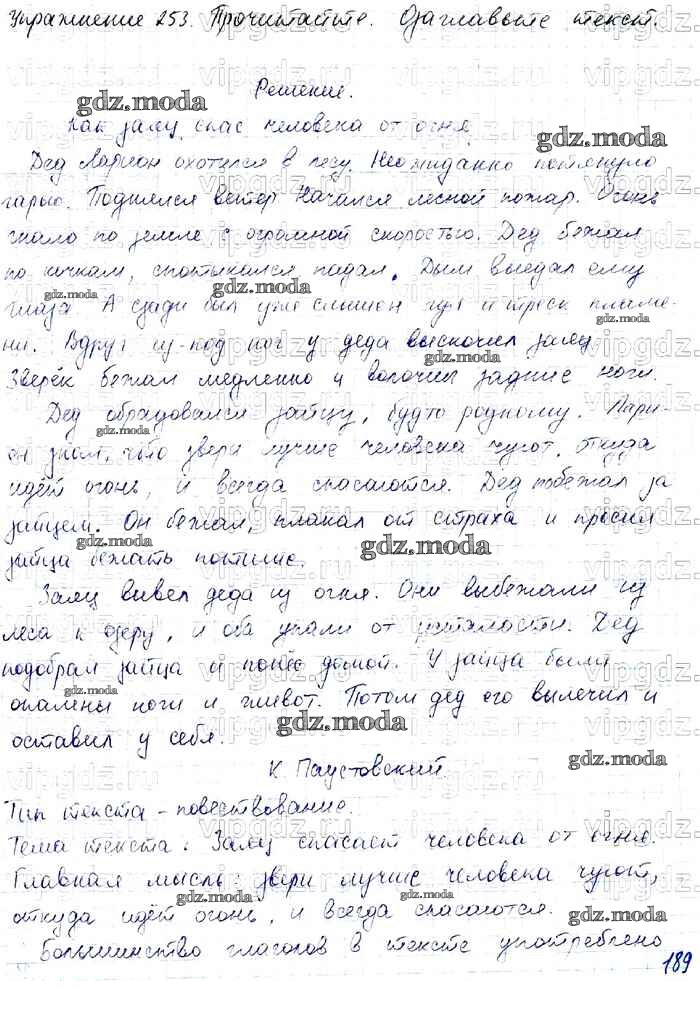 Упражнение 253. Прочитайте. Озаглавьте текст.
Решение.
Как заяц спас человека от огня.
Дед Ларион охотился в лесу. Неожиданно потянуло
гарью. Поднялся ветер. Начался лесной пожар. Огонь
гнало по земле с огромной скоростью. Дед бежал
по кочкам, спотыкался падал. Дым выедал ему
глаза. А сзади был уже слышен гул и треск пламе-
ни. Вдруг из-под ног у деда выскочил заяц.
Зверёк бежал медленно и волочил задние ноги.
Дед обрадовался зайцу, будто родному. Лари-
он знал, что звери лучше человека чуют, откуда
идёт огонь, и всегда спасаются. Дед побежал за
зайцем. Он бежал, плакал от страха и просил
зайца бежать потише.
Заяц вывел деда из огня. Они выбежали из
леса к озеру, и оба упали от усталости. Дед
подобрал зайца и понёс домой. У зайца были
опалены ноги и живот. Потом дед его вылечил и
оставил у себя.
К. Паустовский
Тип текста - повествование.
Тема текста: Заяц спасает человека от огня.
Главная мысль: звери лучше человека чуют,
откуда идёт огонь, и всегда спасаются.
Большинство глаголов в тексте употреблено
189
gdz.moda
vipgdz.ru